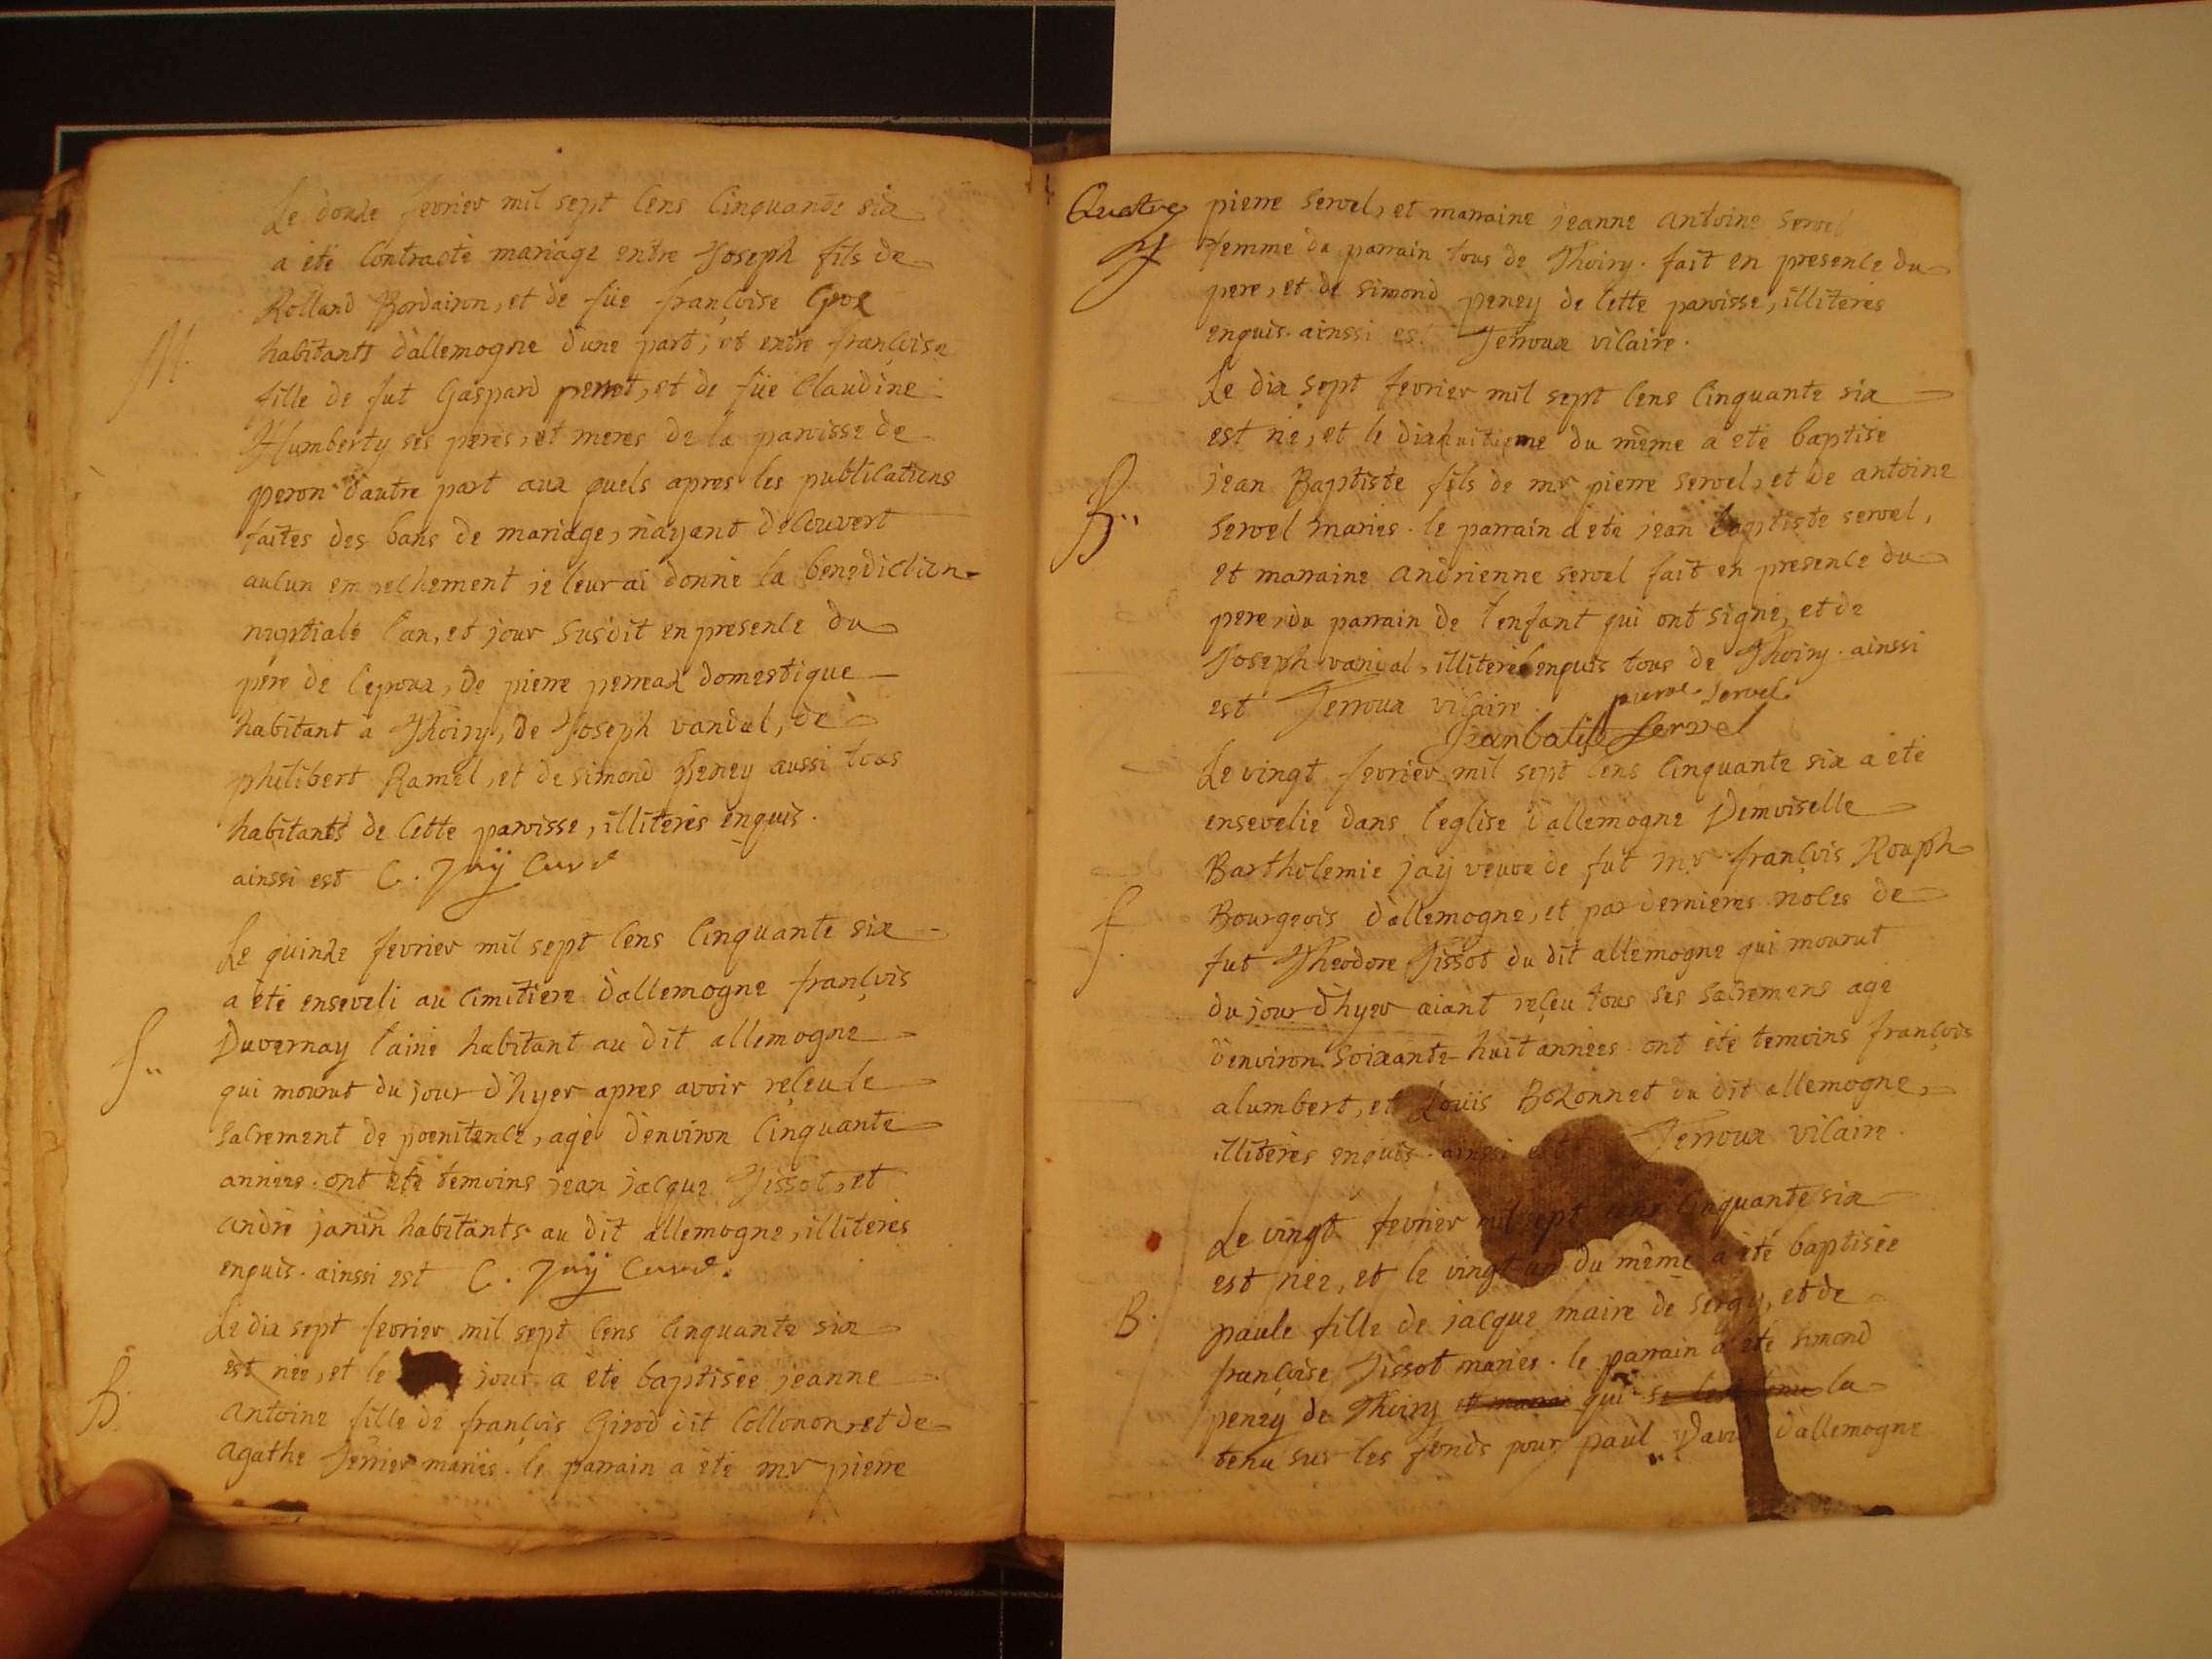 Le douze fevrier mil sept Cens Cinquante six
a été Contracté mariage entre Joseph fils de
Rolland Bordairon, et de füe françoise Grox
M.
habitants d'allemogne d'une part; et entre françoise
fille de fut Gaspard perret, et de füe Claudine
Humberty ses peres, et meres de la paroisse de
peron d'autre part aux quels apres les publications
faites des bans de mariage, n'ayant decouvert
aucun empechement je leur ai donné la benediction
nuptiale l'an, et jour susdit en presence du
pere de l'epoux, de pierre perreax domestique
habitant a Thoiry, de Joseph vandal, de
philibert Ramel, et de simond peney aussi tous
habitants de Cette paroisse, illiterés enquis.
ainssi est C. Jaÿ Curé
Le quinze fevrier mil sept Cens Cinquante six
a été enseveli au Cimitiere d'allemogne françois
S..
Duvernay l'ainé habitant au dit allemogne
qui mourut du jour d'hyer apres avoir reçeu le
sacrement de poenitence, agé d'environ Cinquante
années. ont été temoins jean jacque Tissot, et
andré janin habitants au dit allemogne, illiterés
enquis. ainssi est C. Jaÿ Curé.
Le dix sept fevrier mil sept Cens Cinquante six
est née, et le jour a été baptisée jeanne
B.
antoine fille de françois Girod dit Collonon, et de
agathe Terrier mariés. le parrain a été mr pierre
Quatre
pierre servel, et marraine jeanne antoine servel
femme du parrain tous de Thoiry. fait en presence du
pere, et de simond peney de Cette paroisse, illiterés
enquis. ainssi est Terroux vicaire.
Le dix sept fevrier mil sept Cens Cinquante six
est né, et le dixhuitieme du même a été baptisé
jean Baptiste fils de mr pierre servel, et de antoine
B..
servel mariés. le parrain a été jean baptiste servel,
et marraine andrienne servel fait en presence du
pere, du parrain de l'enfant qui ont signé, et de
Joseph vandal, illiteré enquis tous de Thoiry. ainssi
est Terroux vicaire. pierre servel
Jean batiste servel
Le vingt fevrier mil sept Cens Cinquante six a été
ensevelie dans l'eglise d'allemogne Demoiselle
Bartholemie jaij veuve de fut mr françois Rouph
S.
Bourgeois d'allemogne, et par dernieres noces de
fut Theodore Tissot du dit allemogne qui mourut
du jour d'hyer aiant reçeu tous ses sacremens age
d'environ soixante-huit années. ont été temoins françois
alumbert, et Louis Bozonnet du dit allemogne,
illiterés enquis. ainssi est Terroux vicaire.
Le vingt fevrier mil sept cens Cinquante six
est née, et le vingt un du même a été baptisée
B.
paule fille de jacque maire de sergy, et de
françoise Tissot mariés. le parrain a été simond
peney de Thoiry et marrai qui se les tenu la
tenu sur les fonds pour paul David d'allemogne